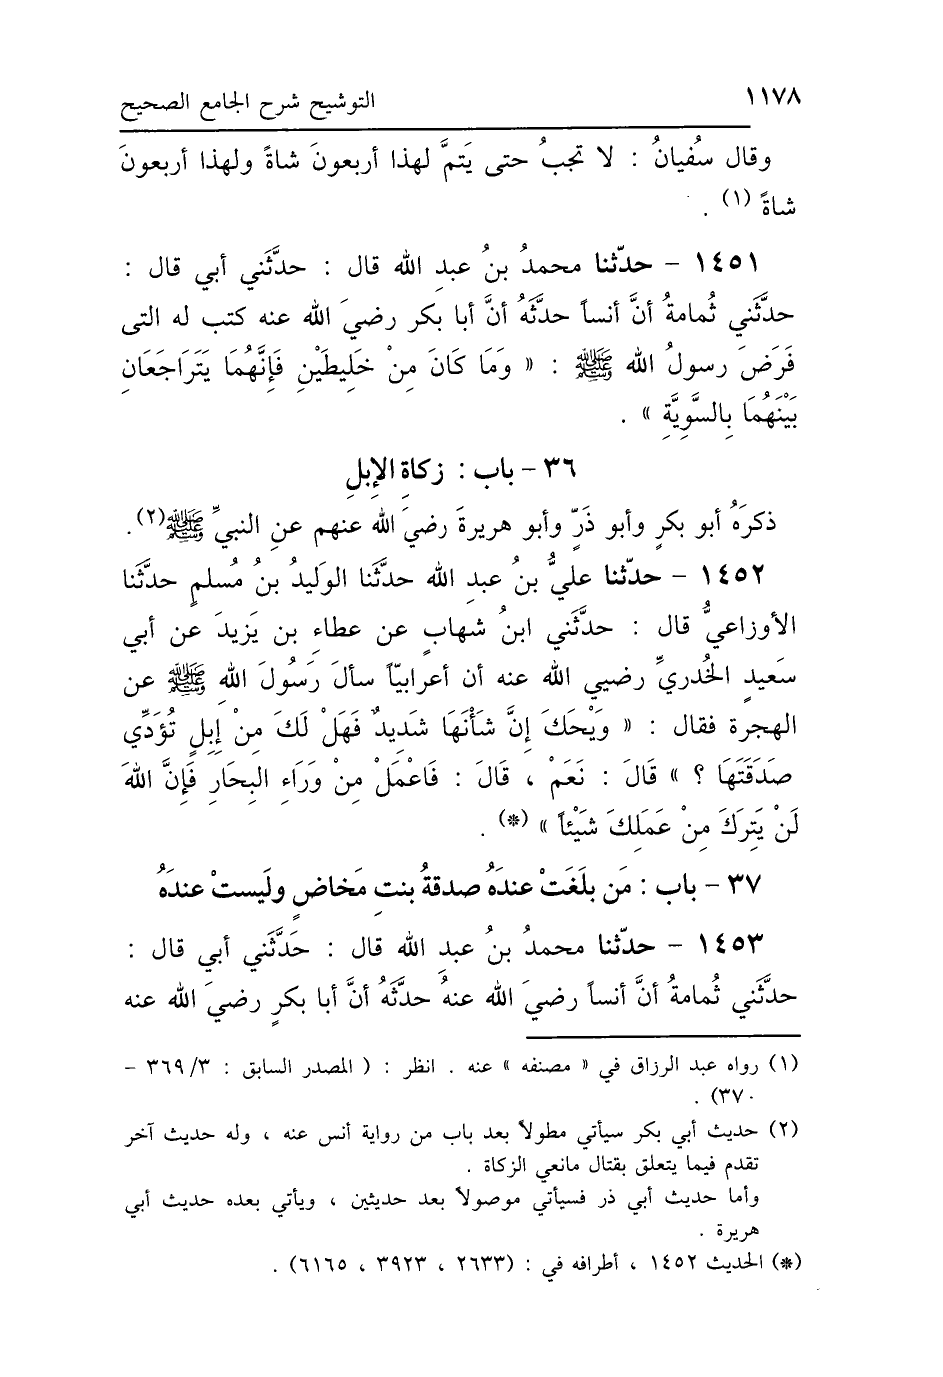 ١١٧٨ التوشيح شرح الجامع الصحيح
وقال سُفيانُ : لا تجبُ حتى يَتمَّ لهذا أربعونَ شاةً ولهذا أربعونَ
شاةً (١) .
١٤٥١ - حدّثنا محمدُ بنُ عبدِ الله قال : حدَّثَني أبي قال :
حدَّثَني ثُمامةُ أنَّ أنساً حدثَّهُ أنَّ أبا بكر رضيَ الله عنه كتب له التى
فَرَضَ رسولُ الله ﷺ : « وَمَا كَانَ مِنْ خَلِيطَيْنِ فَإِنَّهُمَا يَتَرَاجَعَانِ
بَيْنَهُمَا بِالسَّوِيَّةِ » .
٣٦ - باب : زكاةِ الإِبلِ
ذكرَهُ أبو بكرٍ وأبو ذَرٍّ وأبو هريرةَ رضيَ الله عنهم عنِ النبيِّ ﷺ(٢).
١٤٥٢ - حدّثنا عليُّ بنُ عبدِ الله حدَّثَنا الوَليدُ بنُ مُسلمٍ حدَّثَنا
الأوزاعيُّ قال : حدَّثَني ابنُ شهابٍ عن عطاءِ بن يَزيدَ عن أبي
سَعيدٍ الخُدريِّ رضيي الله عنه أن أعرابيّاً سألَ رَسُولَ اللهِ ﷺ عن
الهجرة فقال : « وَيْحَكَ إِنَّ شَأْنَهَا شَدِيدٌ فَهَلْ لَكَ مِنْ إِبِلٍ تُؤَدِّي
صَدَقَتَهَا ؟ » قَالَ : نَعَمْ ، قَالَ : فَاعْمَلْ مِنْ وَرَاءِ البِحَارِ فَإِنَّ اللهَ
لَنْ يَتِرَكَ مِنْ عَمَلِكَ شَيْئاً » (*) .
٣٧ - باب : مَن بلَغَتْ عندَهُ صدقةُ بنتِ مَخاضٍ ولَيستْ عندَهُ
١٤٥٣ - حدّثنا محمدُ بنُ عبدِ الله قال : حَدَّثَني أبي قال :
حدَّثَني ثُمامةُ أنَّ أنساً رضيَ الله عنهُ حدثَّهُ أنَّ أبا بكرٍ رضيَ الله عنه
(١) رواه عبد الرزاق في « مصنفه » عنه . انظر : ( المصدر السابق : ٣/ ٣٦٩ -
٣٧٠) .
(٢) حديث أبي بكر سيأتي مطولاً بعد باب من رواية أنس عنه ، وله حديث آخر
تقدم فيما يتعلق بقتال مانعي الزكاة .
وأما حديث أبي ذر فسيأتي موصولاً بعد حديثين ، ويأتي بعده حديث أبي
هريرة .
(*) الحديث ١٤٥٢ ، أطرافه في : (٢٦٣٣ ، ٣٩٢٣ ، ٦١٦٥) .